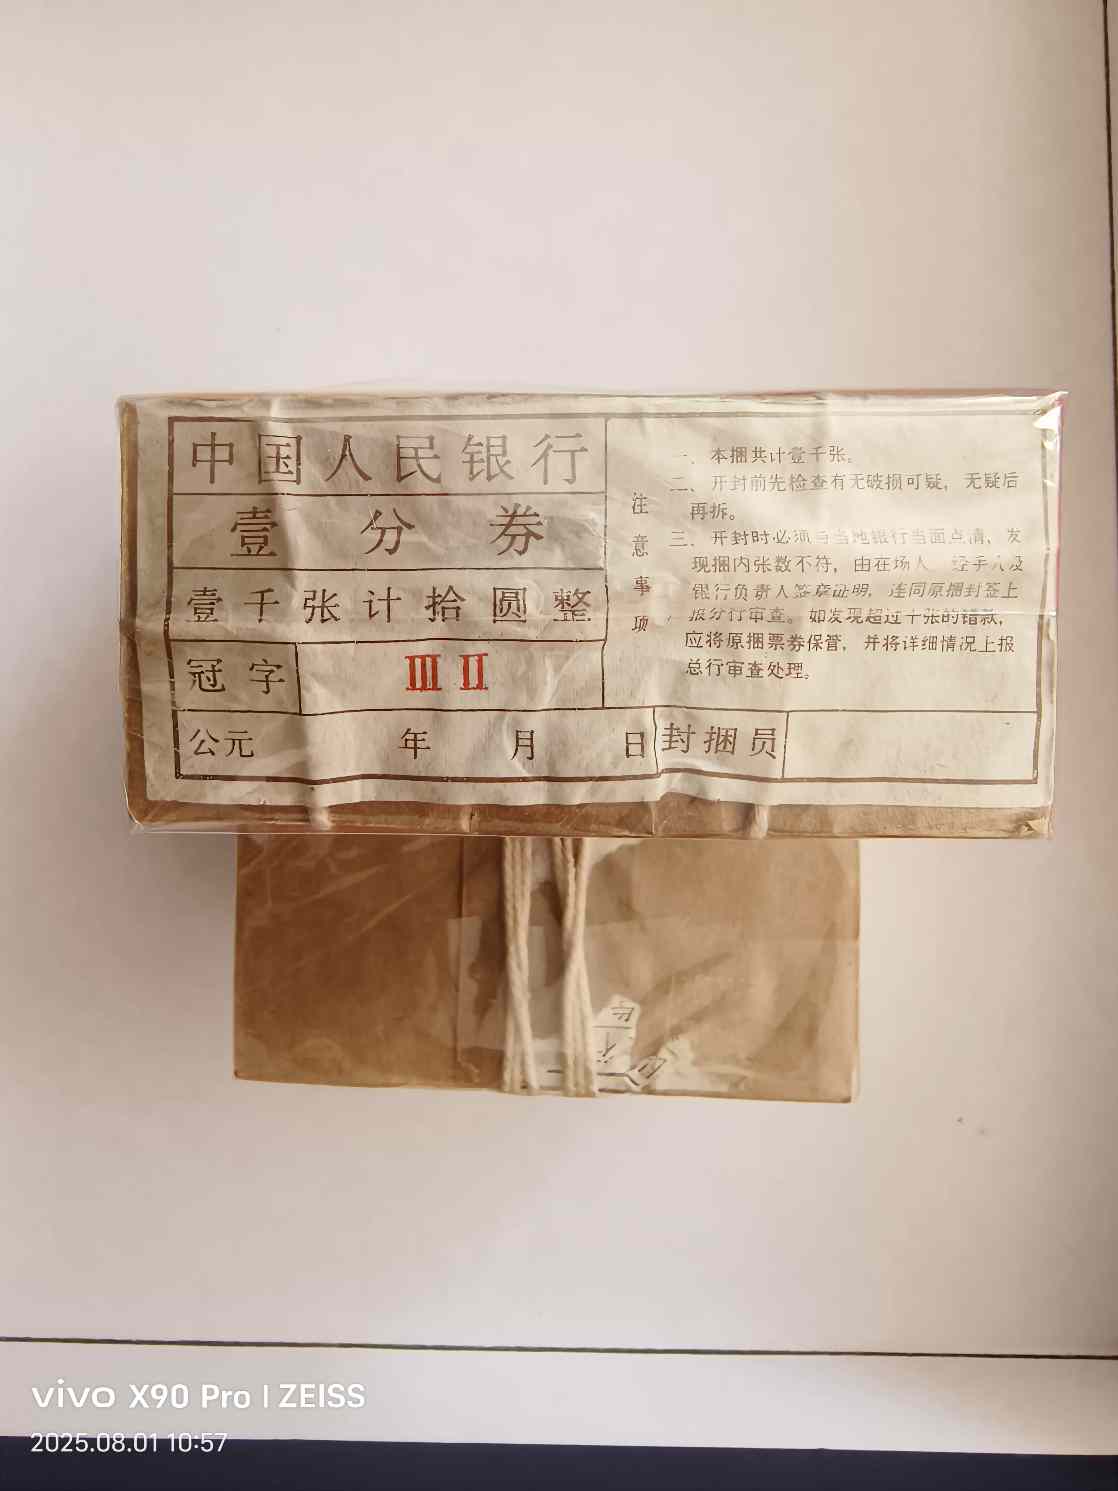 中国人民银行
壹分券
壹千张计拾圆整
冠字 ⅢⅡ
公元 年 月 日 封捆员
注意事项
一、本捆共计壹千张。
二、开封前先检查有无破损可疑，无疑后
再拆。
三、开封时必须与当地银行当面点清，发
现捆内张数不符，由在场人 经手人及
银行负责人签章证明，连同原捆封签上
报分行审查。如发现超过十张的错款，
应将原捆票券保管，并将详细情况上报
总行审查处理。
vivo X90 Pro | ZEISS
2025.08.01 10:57